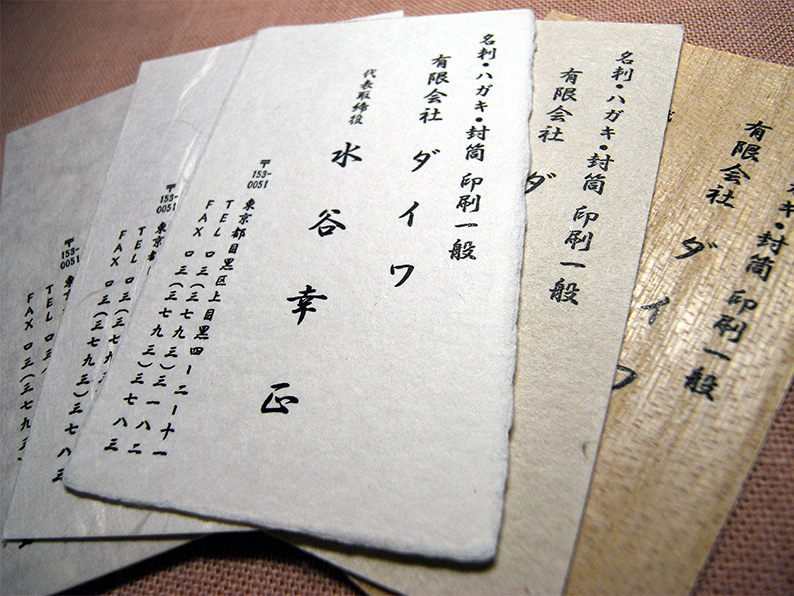 名刺・ハガキ・封筒 印刷一般
有限会社 ダイワ
代表取締役 水谷幸正
〒153-0051
東京都目黒区上目黒四ー二ー十一
TEL 〇三(三七九三)三一八二
FAX 〇三(三七九三)三七八三
名刺・ハガキ・封筒 印刷一般
有限会社 ダ
キ・封筒 印刷一般
有限会社 ダイワ
〒153-0051
東京都
TEL 〇三(三
FAX 〇三(三七九三)三七八三
〒153-0051
東
TEL 〇三
FAX 〇三(三七九三